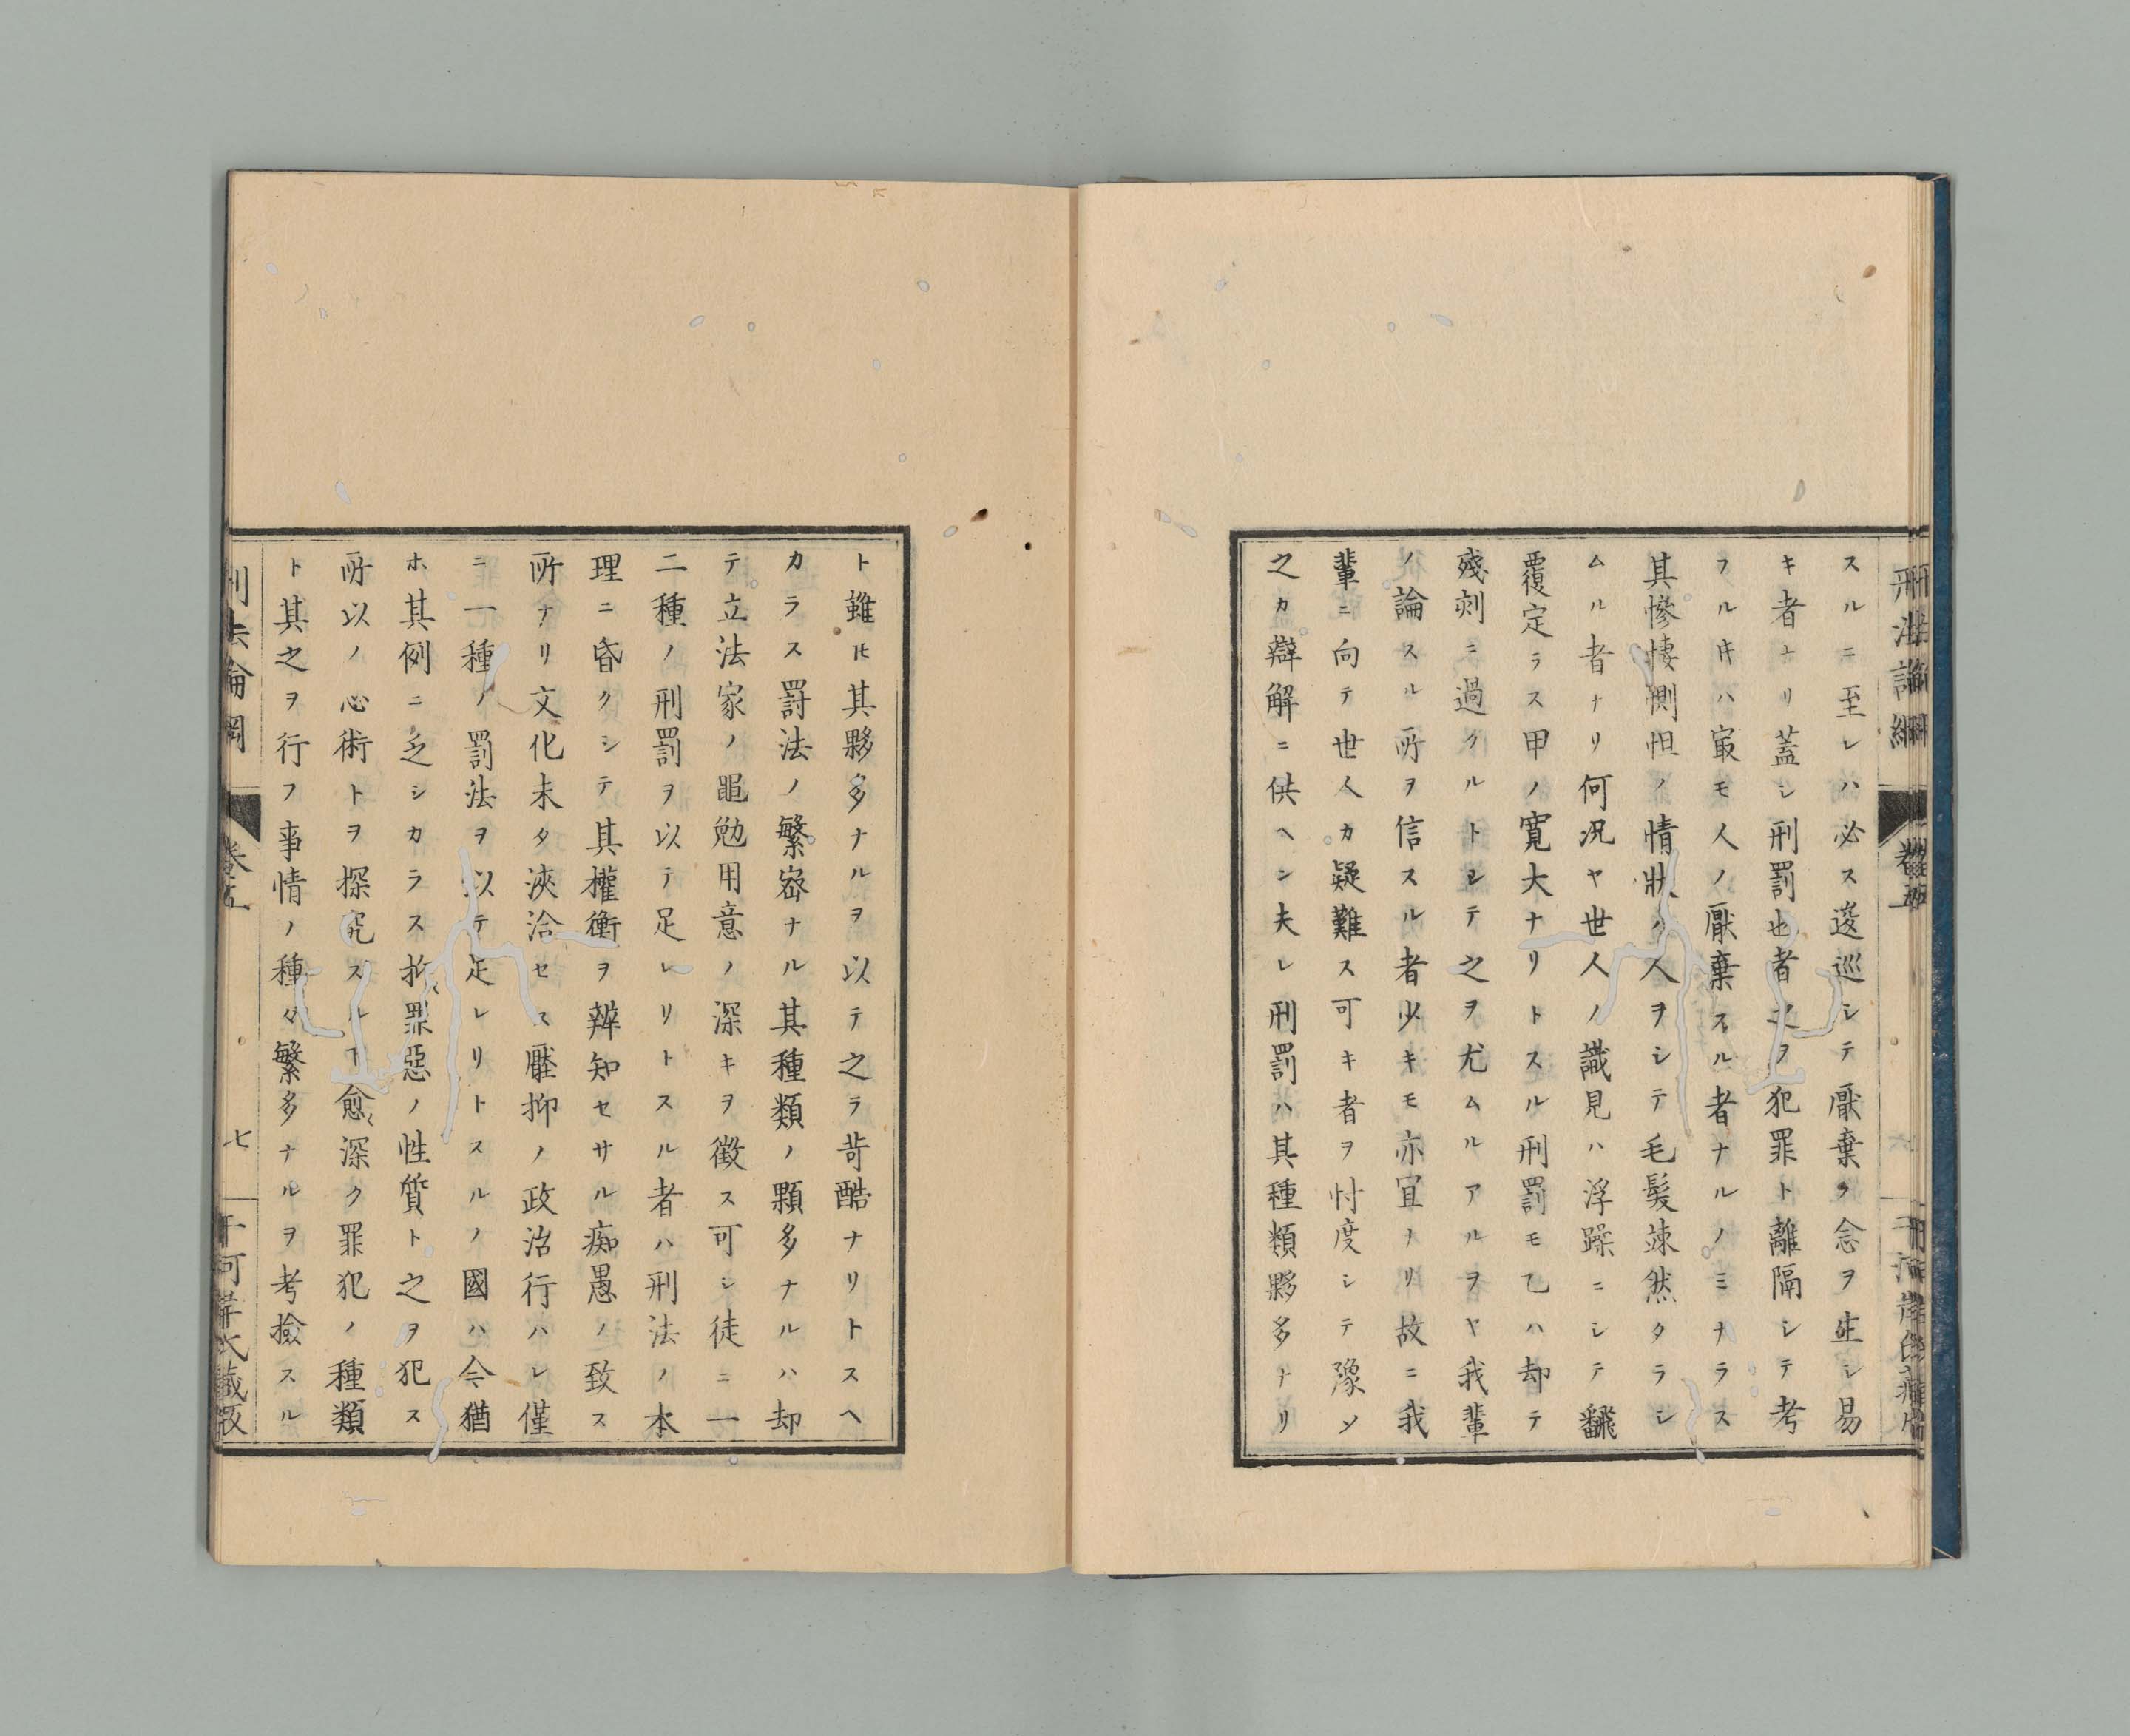 スルニ至レハ必ス逡巡シテ厭棄ノ念ヲ生シ易
キ者ナリ蓋シ刑罰也者之ヲ犯罪ト離隔シテ考
フル𪜈ハ㝡モ人ノ厭棄スル者ナルノミナラス
其慘悽惻怛ノ情狀ハ人ヲシテ毛髮竦然タラシ
ムル者ナリ何况ヤ世人ノ識見ハ浮躁ニシテ飜
覆定ラス甲ノ寛大ナリトスル刑罰モ乙ハ却テ
殘刻ニ過クルトシテ之ヲ尤ムルアルヲヤ我輩
ノ論スル所ヲ信スル者少キモ亦宜ナリ故ニ我
輩ニ向テ世人カ疑難ス可キ者ヲ忖度シテ豫メ
之カ辯解ニ供ヘン夫レ刑罰ハ其種類夥多ナリ
ト雖𪜈其夥多ナルヲ以テ之ヲ苛酷ナリトスヘ
カラス罰法ノ繁宻ナル其種類ノ顆多ナルハ却
テ立法家ノ黽勉用意ノ深キヲ徵ス可シ徒ニ一
二種ノ刑罰ヲ以テ足レリトスル者ハ刑法ノ本
理ニ昏クシテ其權衡ヲ辨知セサル痴愚ノ致ス
所ナリ文化未タ浹洽セス壓抑ノ政治行ハレ僅
ニ一種ノ罰法ヲ以テ足レリトスルノ國ハ今猶
ホ其例ニ乏シカラス抑罪惡ノ性質ト之ヲ犯ス
所以ノ心術トヲ探究スルヿ愈深ク罪犯ノ種類
ト其之ヲ行フ事情ノ種々繁多ナルヲ考撿スル
刑法論綱
卷五
七
于河岸氏藏版